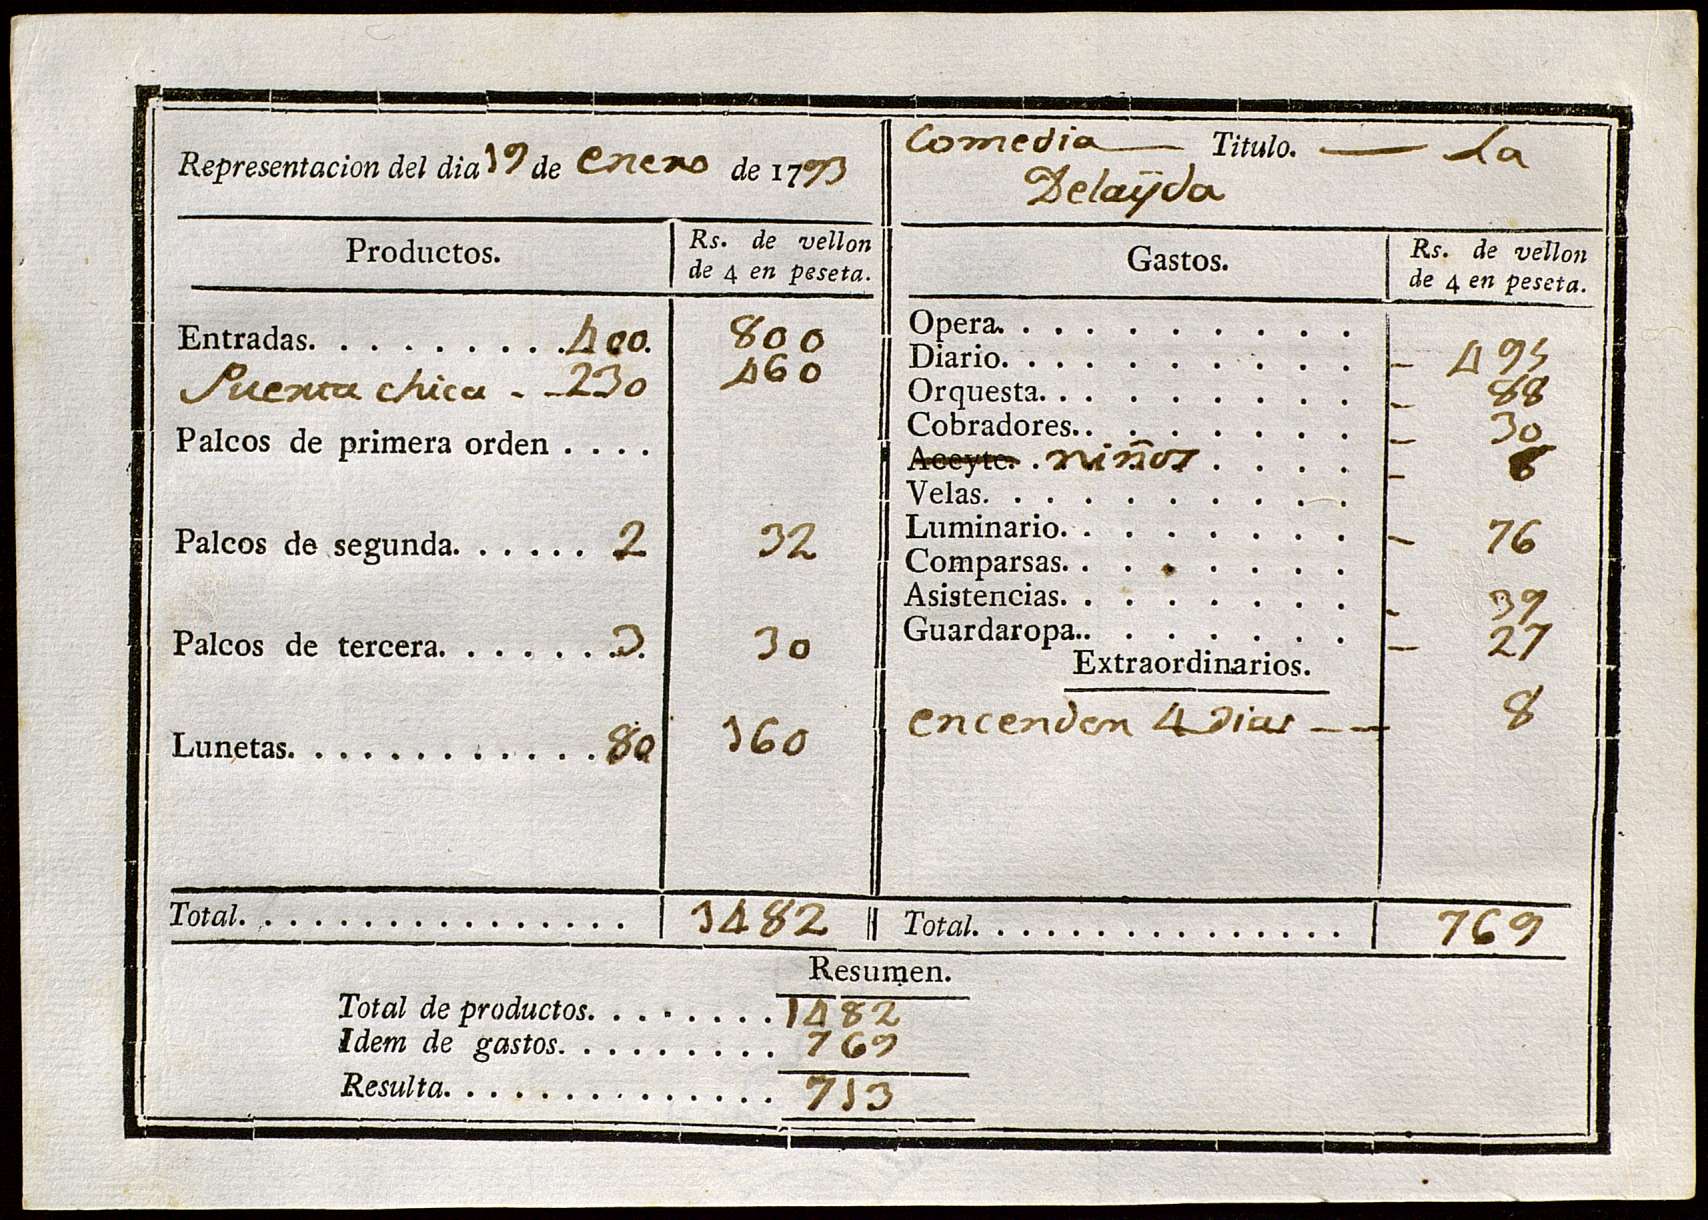 Representacion del dia 19 de enero de 1793
Comedia — Titulo. — La
Delaÿda
Productos. Rs. de vellon
de 4 en peseta.
Entradas. . . . . . . . . . 400. 800
Puerta chica - - 230 460
Palcos de primera orden . . . .
Palcos de segunda. . . . . . 2 32
Palcos de tercera. . . . . . . 3. 30
Lunetas. . . . . . . . . . . . . 80 160
Total. . . . . . . . . . . . . . . . 1482
Gastos. Rs. de vellon
de 4 en peseta.
Opera. . . . . . . . . .
Diario. . . . . . . . . . - 495
Orquesta. . . . . . . . . - 88
Cobradores. . . . . . . . - 30
Aceyte. . niños . . . . - 6
Velas. . . . . . . . . .
Luminario. . . . . . . . - 76
Comparsas. . . . . . . .
Asistencias. . . . . . . . - 39
Guardaropa.. . . . . . . - 27
Extraordinarios.
encender 4 dias - - 8
Total. . . . . . . . . . . . . . . 769
Resumen.
Total de productos. . . . . . . . 1482
Idem de gastos. . . . . . . . . 769
Resulta. . . . . . . . . . . . . . 713